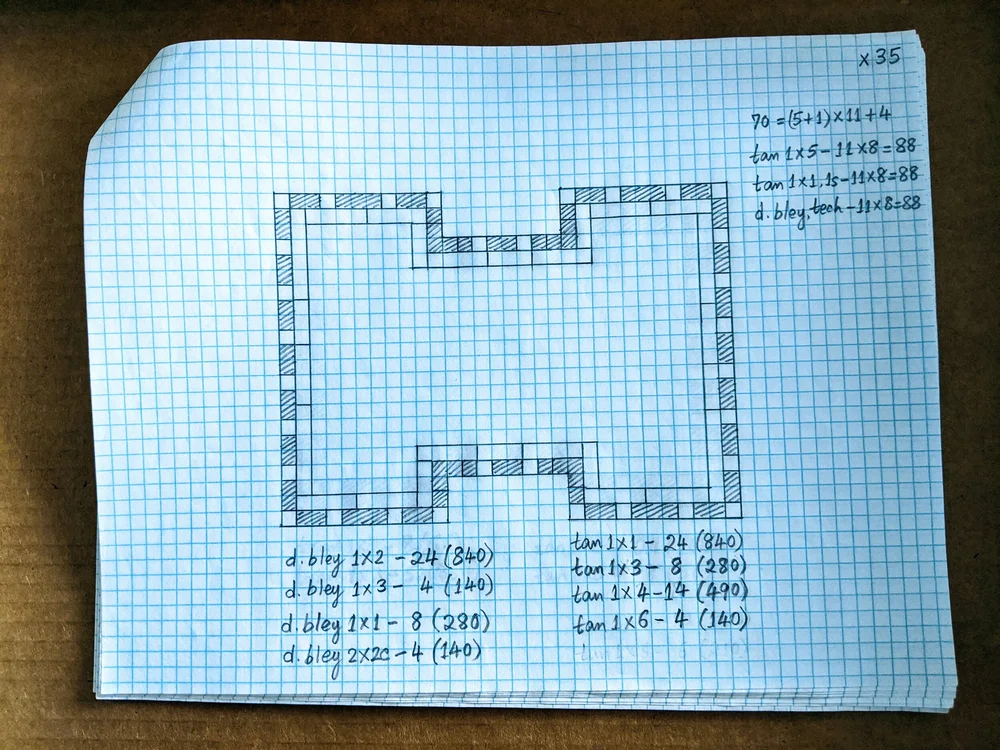 x35
70 = (5+1)x11+4
tan 1x5 - 11x8 = 88
tan 1x1, 1s - 11x8=88
d.bley, tech - 11x8=88
d.bley 1x2 - 24 (840)
d.bley 1x3 - 4 (140)
d.bley 1x1 - 8 (280)
d.bley 2x2c - 4 (140)
tan 1x1 - 24 (840)
tan 1x3 - 8 (280)
tan 1x4 - 14 (490)
tan 1x6 - 4 (140)